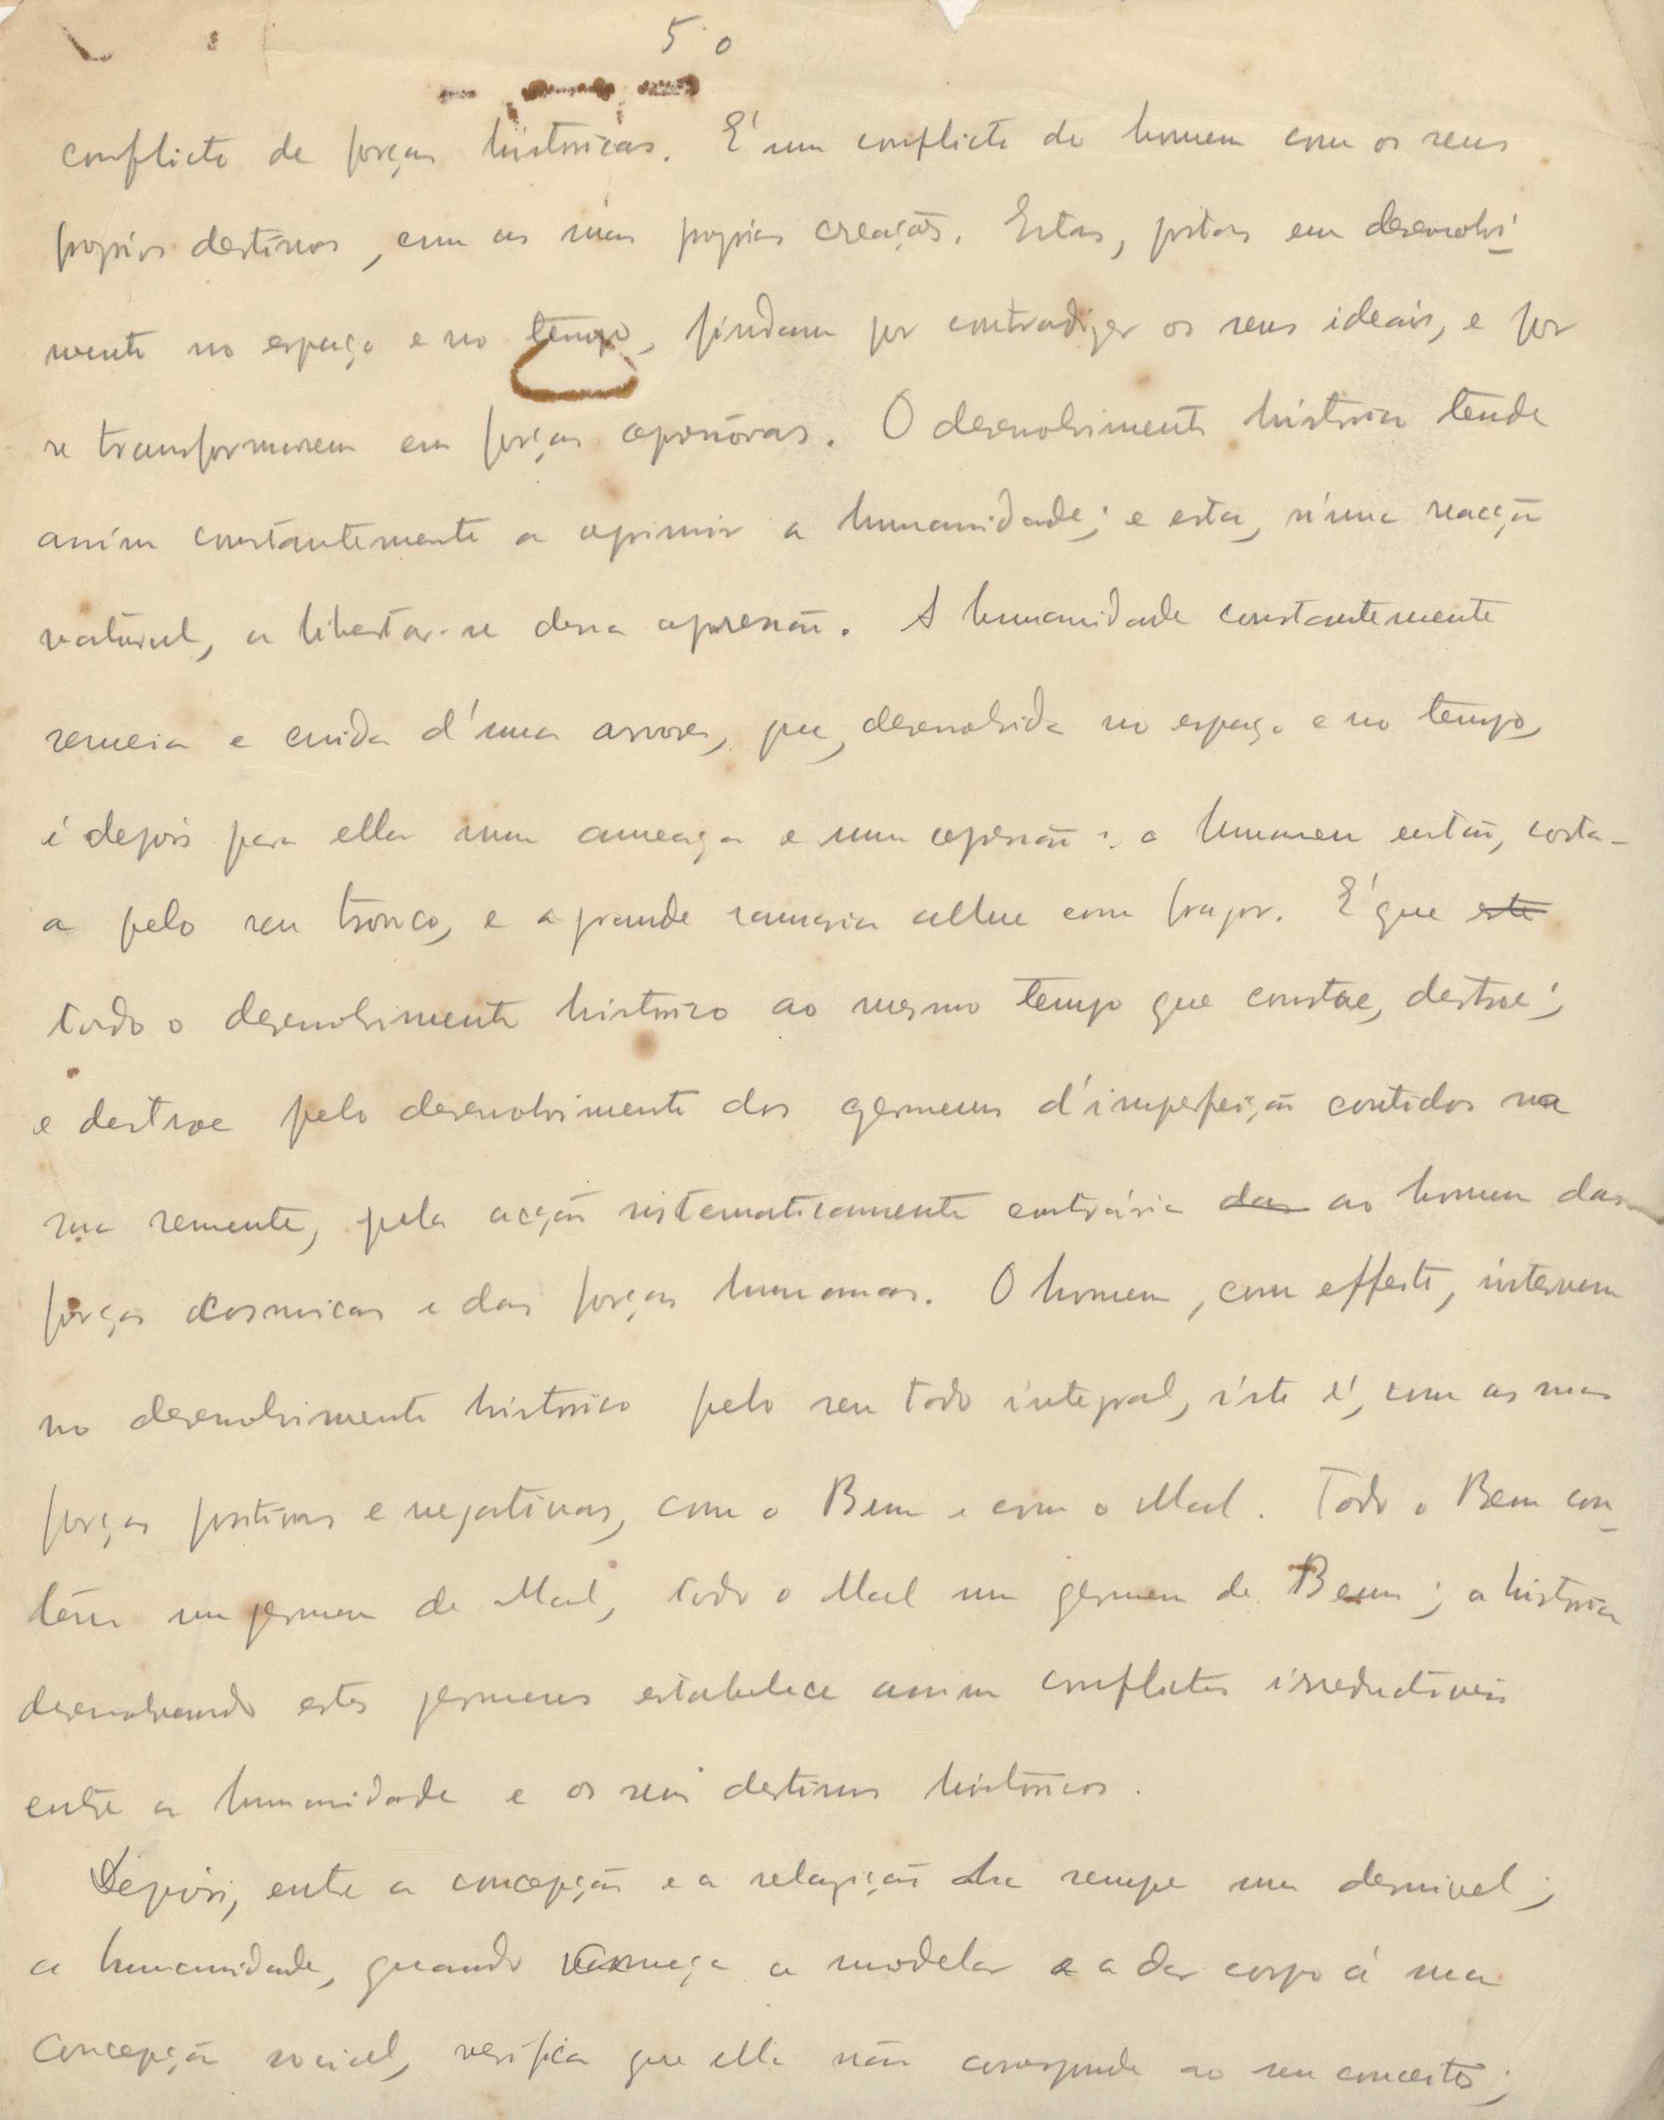 5º
conflicto de forças históricas. É um conflicto do homem com os seus
proprios destinos, com as suas proprias creações. Estas, postas em desenvolvi-
mento no espaço e no tempo, findam por contradizer os seus ideais, e por
se transformarem em forças opressoras. O desenvolvimento historico tende
assim constantemente a oprimir a humanidade; e esta, n'uma reacção
natural, a libertar-se dessa opressão. A humanidade constantemente
semeia e cuida d'uma arvore, que, desenvolvida no espaço e no tempo,
é depois para ella uma ameaça e uma opressão; o homem então, corta-
a pelo seu tronco, e a grande ramaria allue com fragor. É que este
todo o desenvolvimento historico ao mesmo tempo que constroe, destroe;
e destroe pelo desenvolvimento dos germens d'imperfeição contidos na
sua semente, pela acção sistematicamente contrária das ao homem das
forças cosmicas e das forças humanas. O homem, com effeito, intervem
no desenvolvimento historico pelo seu todo integral, isto é, com as suas
forças positivas e negativas, com o Bem e com o Mal. Todo o Bem con-
tém um germen de Mal, todo o Mal um germen de Bem; a historia
desenvolvendo estes germens estabelece assim conflictos irreductiveis
entre a humanidade e os seus destinos historicos.
Depois, entre a concepção e a ha sempre um desnivel;
a humanidade, quando começa a modelar e a dar corpo á sua
concepção social, verifica que ella não corresponde ao seu conceito;